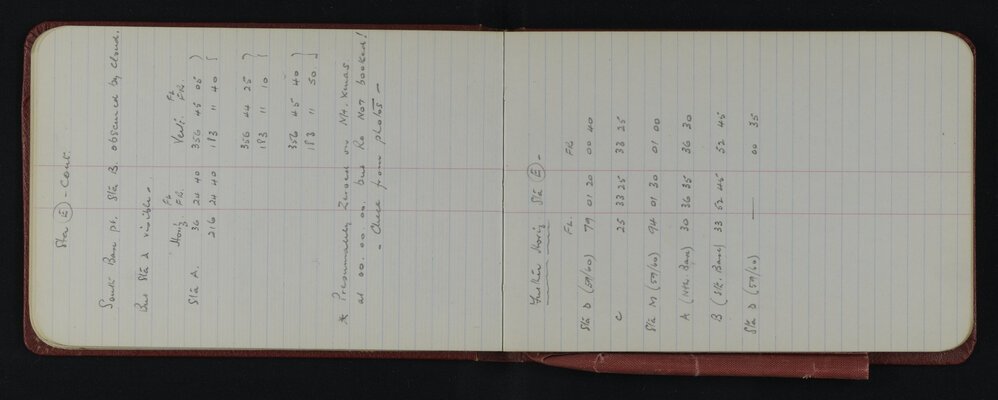 Sta (E) - Cont.
South Base pt. Sta B. obscured by cloud.
But Sta A visible -
Horiz FL FR. Vert. FL FR.
Sta A. 36 24 40 356 45 05
216 24 40 183 11 40
356 44 25
183 11 10
356 45 40
183 11 50
* Presumably zeroed on Mt. Xmas
at 00. 00 00. but Ro Not booked!
- Check from photos -
Further Horiz Sta (E) -
FL. FR.
Sta D (59/60) 79 01 20 00 40
C 25 33 25 33 25
Sta M (59/60) 94 01 30 01 00
A (Nth. Base) 30 36 35 36 30
B (Sth. Base) 33 52 45 52 45
Sta D (59/60) — 00 35